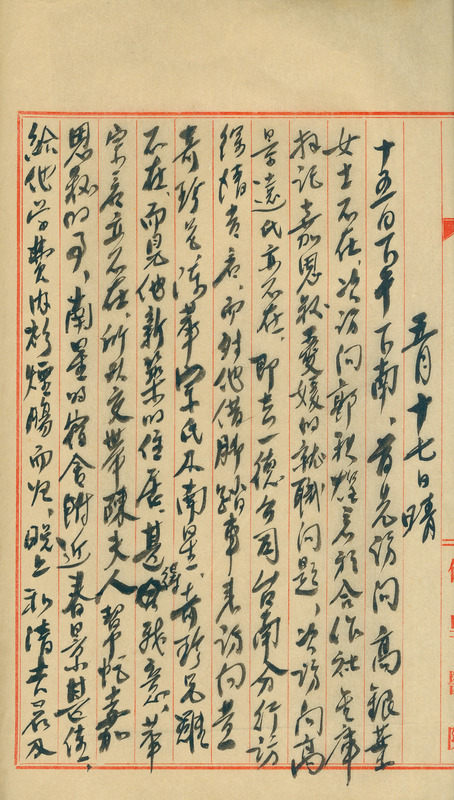 五月十七日晴
十五日下午下南、首先訪問高銀葉
女士不在、次訪問郭秋煌君於合作社金庫
拜託嘉恩叙愛媛的就職問題、次訪問高
景遠氏亦不在、即去一德公司台南分行訪
清貴君、而對他借脚踏車來訪問黃
奇珍兄陳華宗氏及南星、奇珍兄雖
不在而見他新築的住居、甚得我意、華
宗君亦不在、所以交帶陳夫人幫忙嘉
恩叙的事、南星的宿舍附近春景甚佳、
給他学費煙腸而、晚上和清貴君及